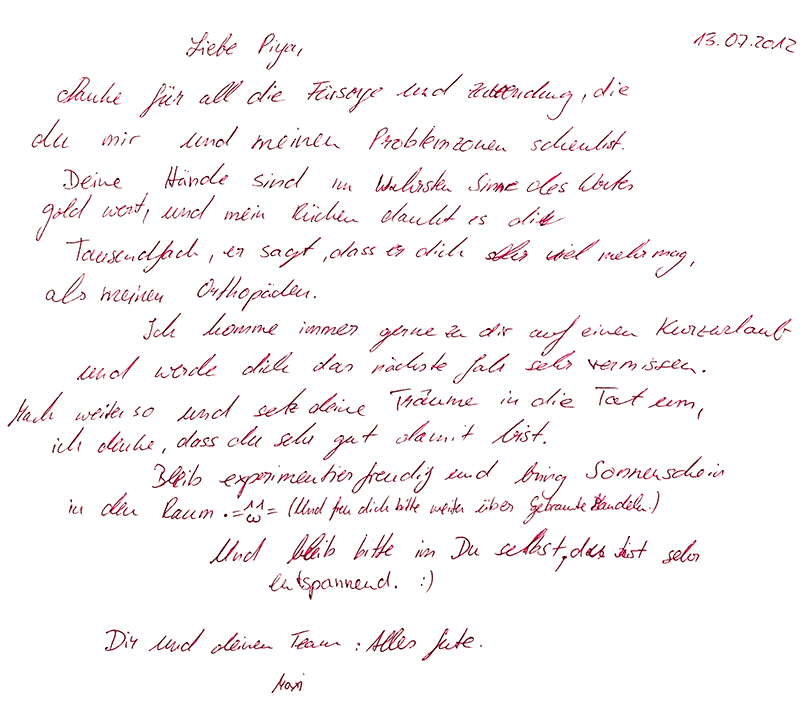 13.07.2012
Liebe Piya,
danke für all die Fürsorge und Zuwendung, die
du mir und meinen Problemzonen schenkst.
Deine Hände sind im Wahrsten Sinne des Wortes
gold wert, und mein Rücken dankt es dir
Tausendfach, er sagt, dass er dich sehr viel mehr mag,
als meinen Orthopäden.
Ich komme immer gerne zu dir auf einen Kurzurlaub
und werde dich das nächste Jahr sehr vermissen.
Mach weiter so und setz deine Träume in die Tat um,
ich denke, dass du sehr gut damit bist.
Bleib experimentierfreudig und bring Sonnenschein
in den Raum (Und freu dich bitte weiter über Gebrannte Mandeln.)
Und bleib bitte im Du selbst, das ist sehr
entspannend. :)
Dir und deinen Team : Alles Gute.